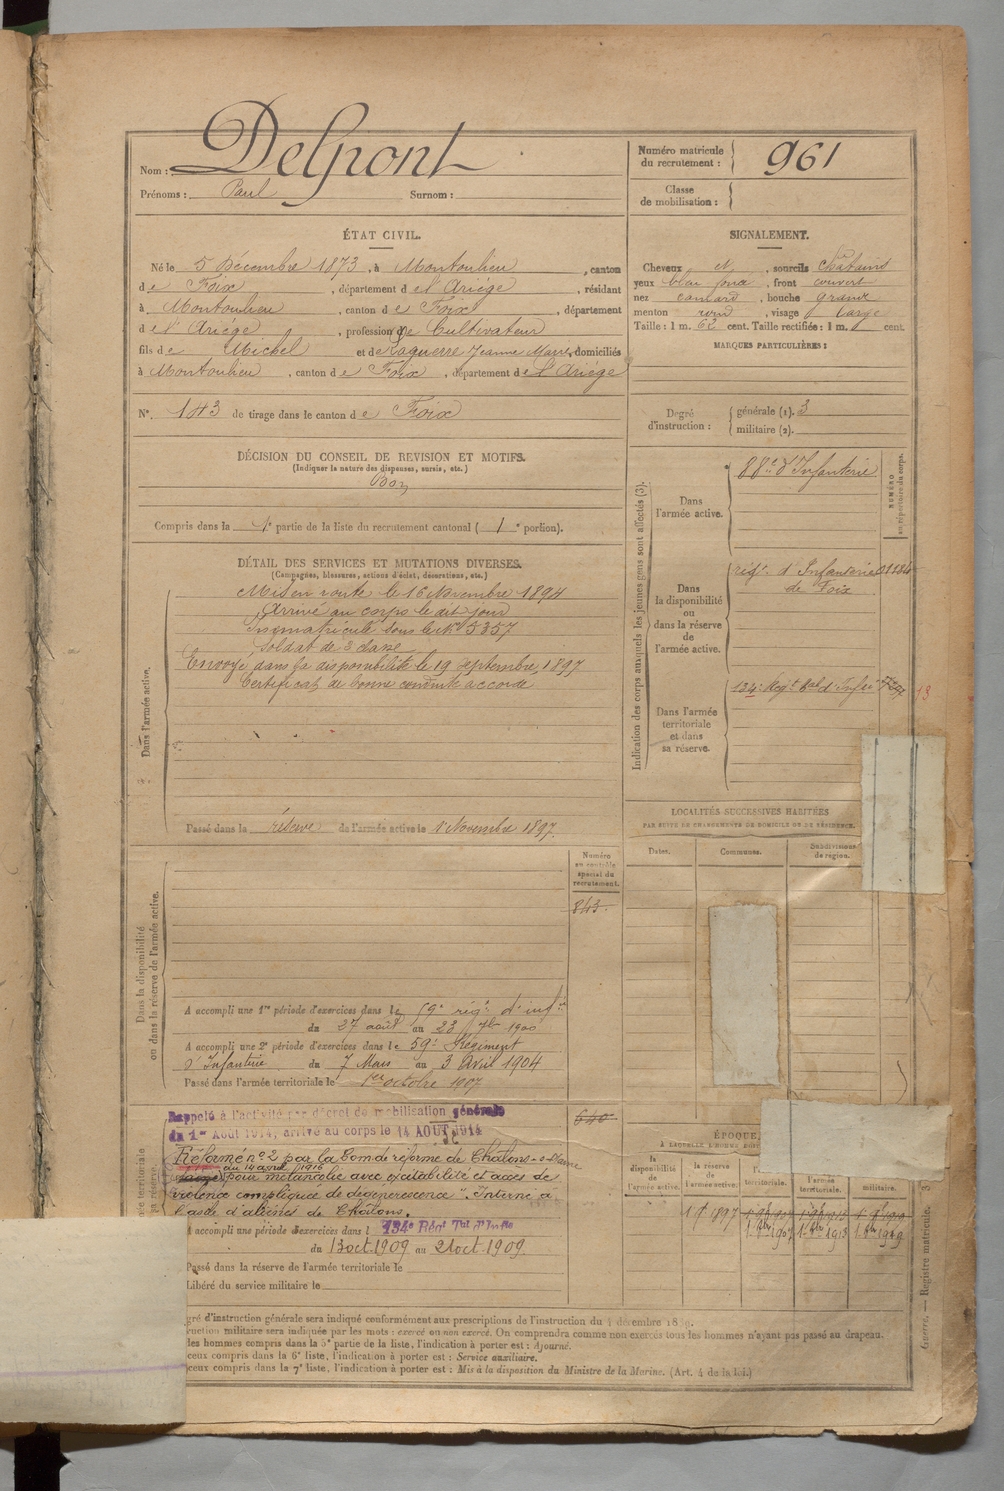 Nom : Delpont
Prénoms : Paul Surnom :
Numéro matricule
du recrutement : 961
Classe
de mobilisation :
ÉTAT CIVIL.
Né le 5 Décembre 1873, à Montoulieu, canton
de Foix, département de l'Ariège, résidant
à Montoulieu, canton de Foix, département
de l'Ariège, profession de Cultivateur
fils de Michel et de Laguerre Jeanne Marie, domiciliés
à Montoulieu, canton de Foix, département de l'Ariège
N°. 143 de tirage dans le canton de Foix
DÉCISION DU CONSEIL DE REVISION ET MOTIFS.
(Indiquer la nature des dispenses, sursis, etc.)
Bon
Compris dans la 1e partie de la liste du recrutement cantonal (1e portion).
SIGNALEMENT.
Cheveux et, sourcils châtains
yeux bleu, front couvert
nez camard, bouche grande
menton rond, visage large
Taille : 1 m. 62 cent. Taille rectifiée : 1 m. cent.
MARQUES PARTICULIÈRES :
Degré
d'instruction :
générale (1). 3
militaire (2).
DÉTAIL DES SERVICES ET MUTATIONS DIVERSES.
(Campagnes, blessures, actions d'éclat, décorations, etc.)
Dans l'armée active.
Mis en route le 16 Novembre 1894
Arrivé au corps le dit jour
Immatriculé sous le N° 5357
Soldat de 2 classe
Envoyé dans la disponibilité le 19 septembre 1897
Certificat de bonne conduite accordé
Passé dans la réserve de l'armée active le 1er Novembre 1897.
Indication des corps auxquels les jeunes gens sont affectés (3).
Dans
l'armée active.
88e d'Infanterie
NUMÉRO
au répertoire du corps.
Dans
la disponibilité
ou
dans la réserve
de
l'armée active.
régt. d'Infanterie
de Foix
Dans l'armée
territoriale
et dans
sa réserve.
134e Régt tal d'Infie
LOCALITÉS SUCCESSIVES HABITÉES
PAR SUITE DE CHANGEMENTS DE DOMICILE OU DE RÉSIDENCE.
Dates. Communes. Subdivisions
de région.
Dans la disponibilité
ou dans la réserve de l'armée active.
Numéro
au contrôle
spécial du
recrutement.
843.
A accompli une 1re période d'exercices dans le 59e régt d'infie
du 27 août au 23 7bre 1900
A accompli une 2e période d'exercices dans le 59e Régiment
d'Infanterie du 7 Mars au 3 Avril 1904
Passé dans l'armée territoriale le 1er octobre 1907
Rappelé à l'activité par décret de mobilisation générale
du 1er Août 1914, arrivé au corps le 14 AOUT 1914
640
Réformé n° 2 par la Com de réforme de Châlons-s-Marne
du 14 avril 1916
pour mélancolie avec excitabilité et accès de
violence compliquée de dégénérescence". Interné à
l'asile d'aliénés de Châlons.
A accompli une période d'exercices dans l 134e Régt Tal d'Infie
du 13 oct 1909 au 21 oct 1909.
Passé dans la réserve de l'armée territoriale le
Libéré du service militaire le
ÉPOQUE,
la
disponibilité
de l'armée active.
la réserve
de
l'armée active.
territoriale.
l'armée
territoriale.
militaire.
gré d'instruction générale sera indiqué conformément aux prescriptions de l'instruction du 4 décembre 1889.
ruction militaire sera indiquée par les mots : exercé ou non exercé. On comprendra comme non exercés tous les hommes n'ayant pas passé au drapeau.
les hommes compris dans la 5e partie de la liste, l'indication à porter est : Ajourné.
ceux compris dans la 6e liste, l'indication à porter est : Service auxiliaire.
ceux compris dans la 7e liste, l'indication à porter est : Mis à la disposition du Ministre de la Marine. (Art. 4 de la loi.)
Guerre. — Registre matricule.